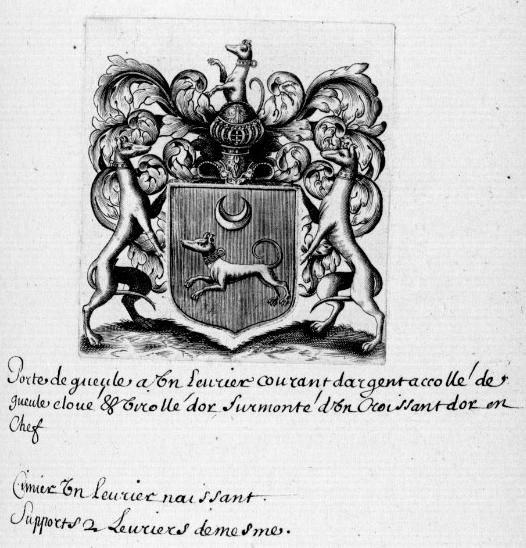 Porte de gueule a Vn Leurier courant dargent accollé de
gueule cloué & Virollé dor Surmonté d'Vn Croissant dor en
Chef
Cimier Vn leurier naissant.
Supports 2 Leuriers demesme.